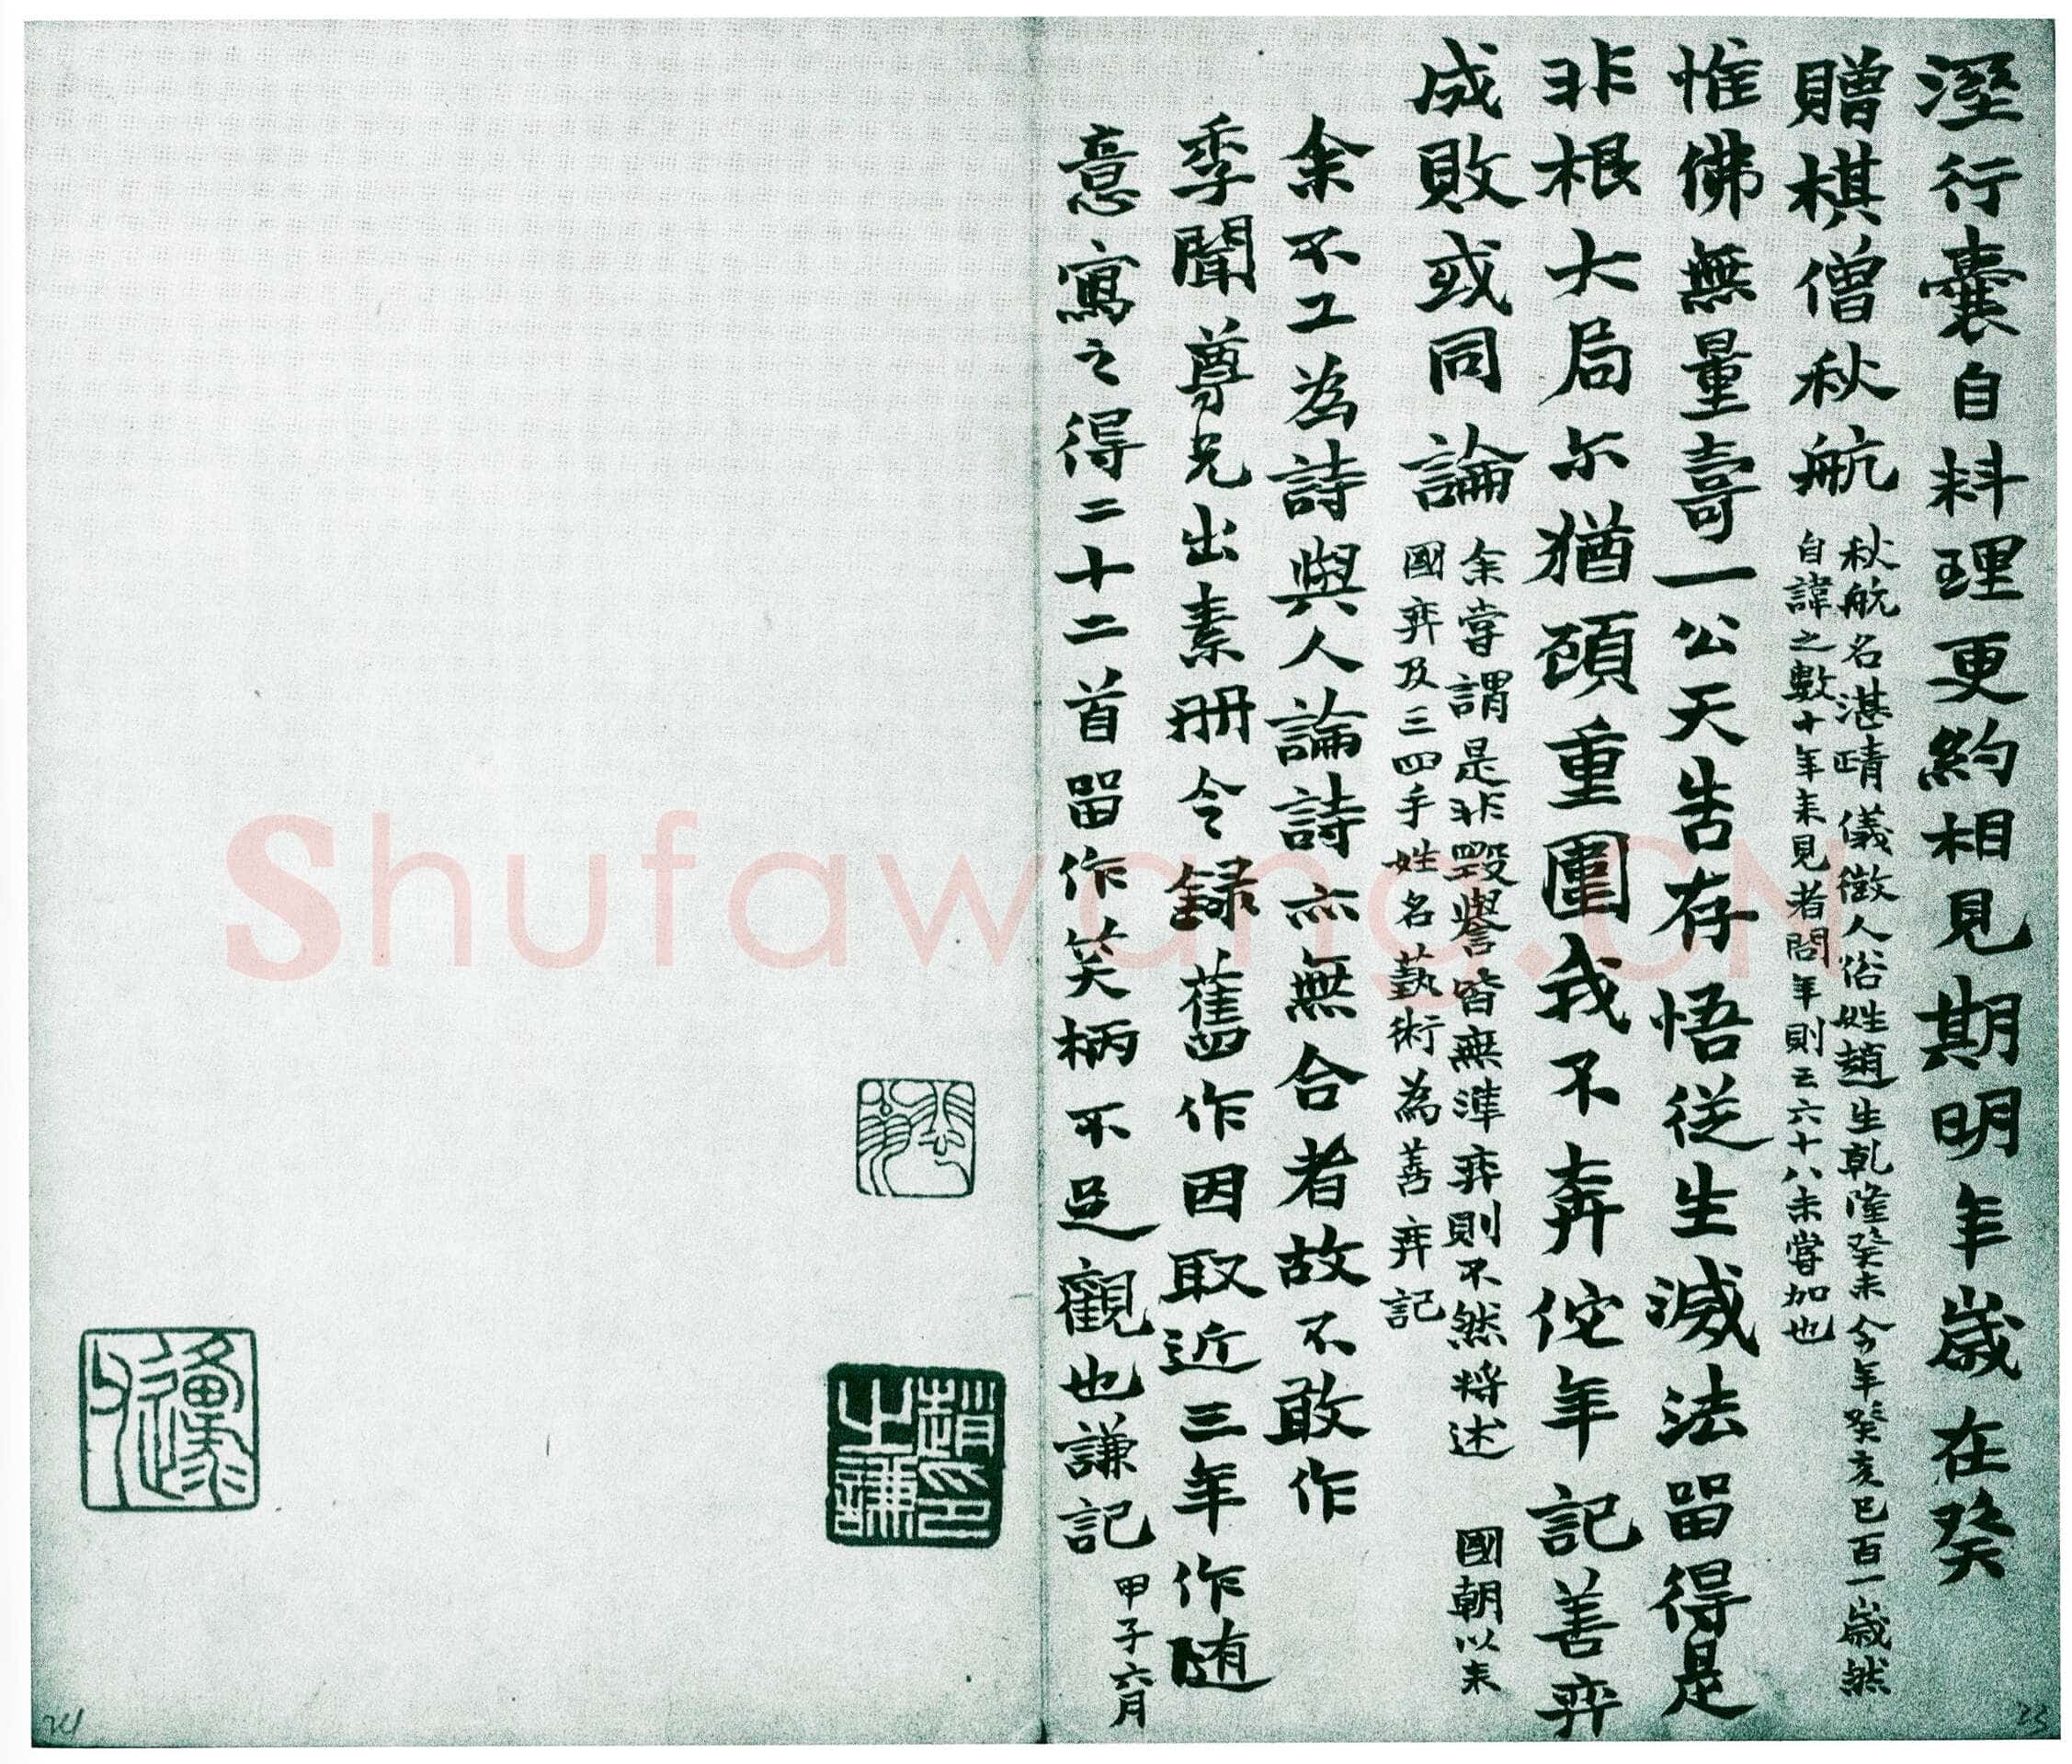 溼行囊自料理更約相見期明年歲在癸
贈棋僧秋航
秋航名湛晴儀徵人俗姓趙生乾隆癸未今年癸亥巳百一歲然
自諱之數十年來見者問年則云六十八未嘗加也
惟佛無量壽一公天告存悟從生滅法畱得是
非根大局尔猶頋重圍我不奔佗年記善弈
成敗或同論
余嘗謂是非毀譽皆無準弈則不然將述 國朝以來
國弈及三四手姓名藝術為善弈記
余不工為詩與人論詩亦無合者故不敢作
季聞尊兄出素冊令録舊作因取近三年作随
意寫之得二十二首畱作笑柄不足觀也謙記
甲子六月
趙之謙印
Shufawang.CN
24
23